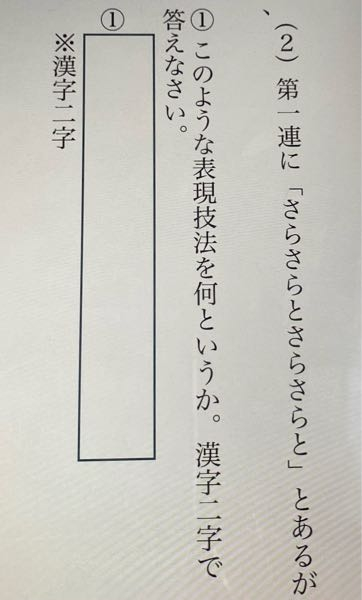 (2) 第一連に「さらさらとさらさらと」とあるが
、
① このような表現技法を何というか。 漢字二字で
答えなさい。
①
※漢字二字